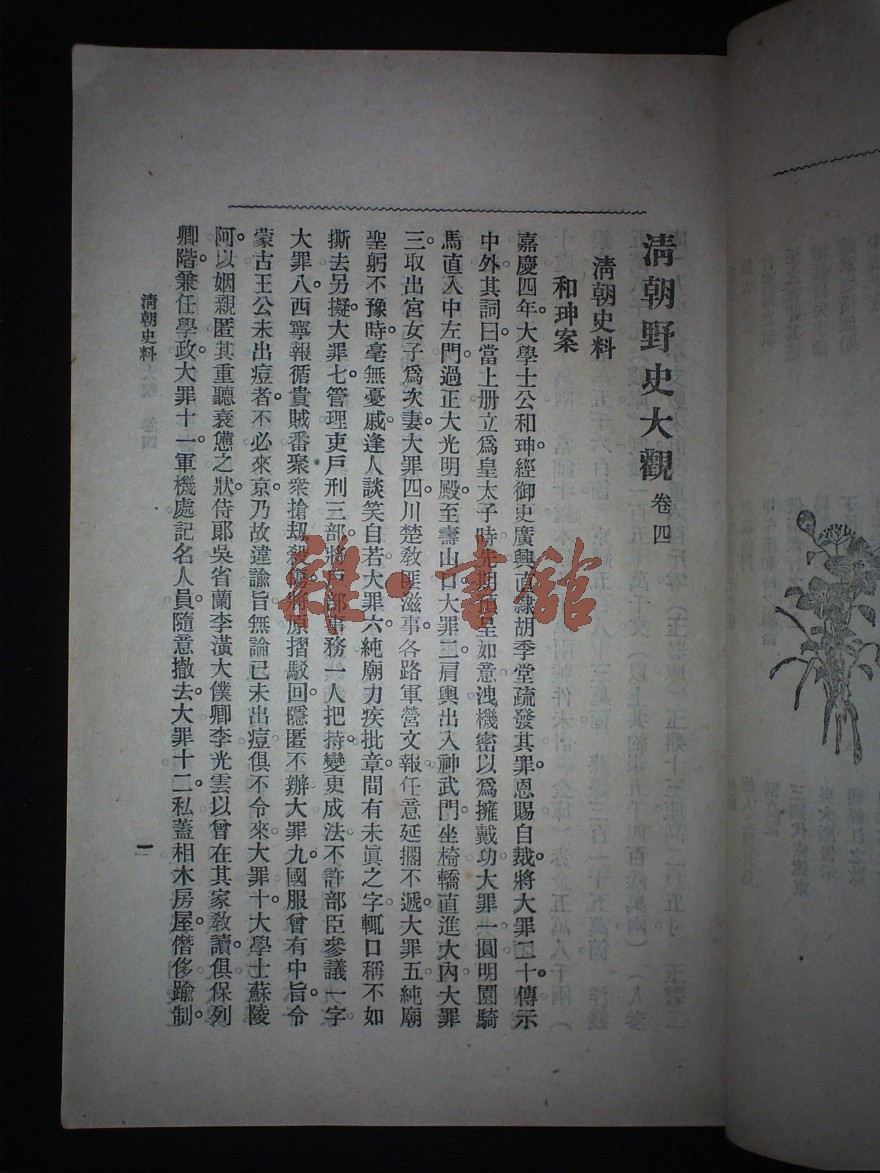 清朝野史大觀 卷四
清朝史料
和珅案
嘉慶四年。大學士公和珅。經御史廣興。直隸胡季堂疏發其罪。恩賜自裁。將大罪二十。傳示
中外。其詞曰。當上册立爲皇太子時。先期預呈如意。洩機密以爲擁戴功。大罪一。圓明園騎
馬直入中左門。過正大光明殿。至壽山口。大罪二。肩輿出入神武門。坐椅轎直進大內。大罪
三。取出宮女子爲次妻。大罪四。川楚敎匪滋事。各路軍營文報任意延擱不遞。大罪五。純廟
聖躬不豫時。毫無憂戚。逢人談笑自若。大罪六。純廟力疾批章。間有未眞之字。輒口稱不如
撕去另擬。大罪七。管理吏戶刑三部。將戶部事務一人把持。變更成法。不許部臣參議一字。
大罪八。西寧報循貴賊番聚衆搶刼殺傷。將原摺駁回。隱匿不辦。大罪九。國服曾有中旨。令
蒙古王公未出痘者。不必來京。乃故違諭旨。無論已未出痘。俱不令來。大罪十。大學士蘇陵
阿。以姻親匿其重聽衰憊之狀。侍郞吳省蘭李潢大僕卿李光雲。以曾在其家敎讀。俱保列
卿階。兼任學政。大罪十一。軍機處記名人員。隨意撤去。大罪十二。私蓋相木房屋。僭侈踰制。
清朝史料
一
雜·書館